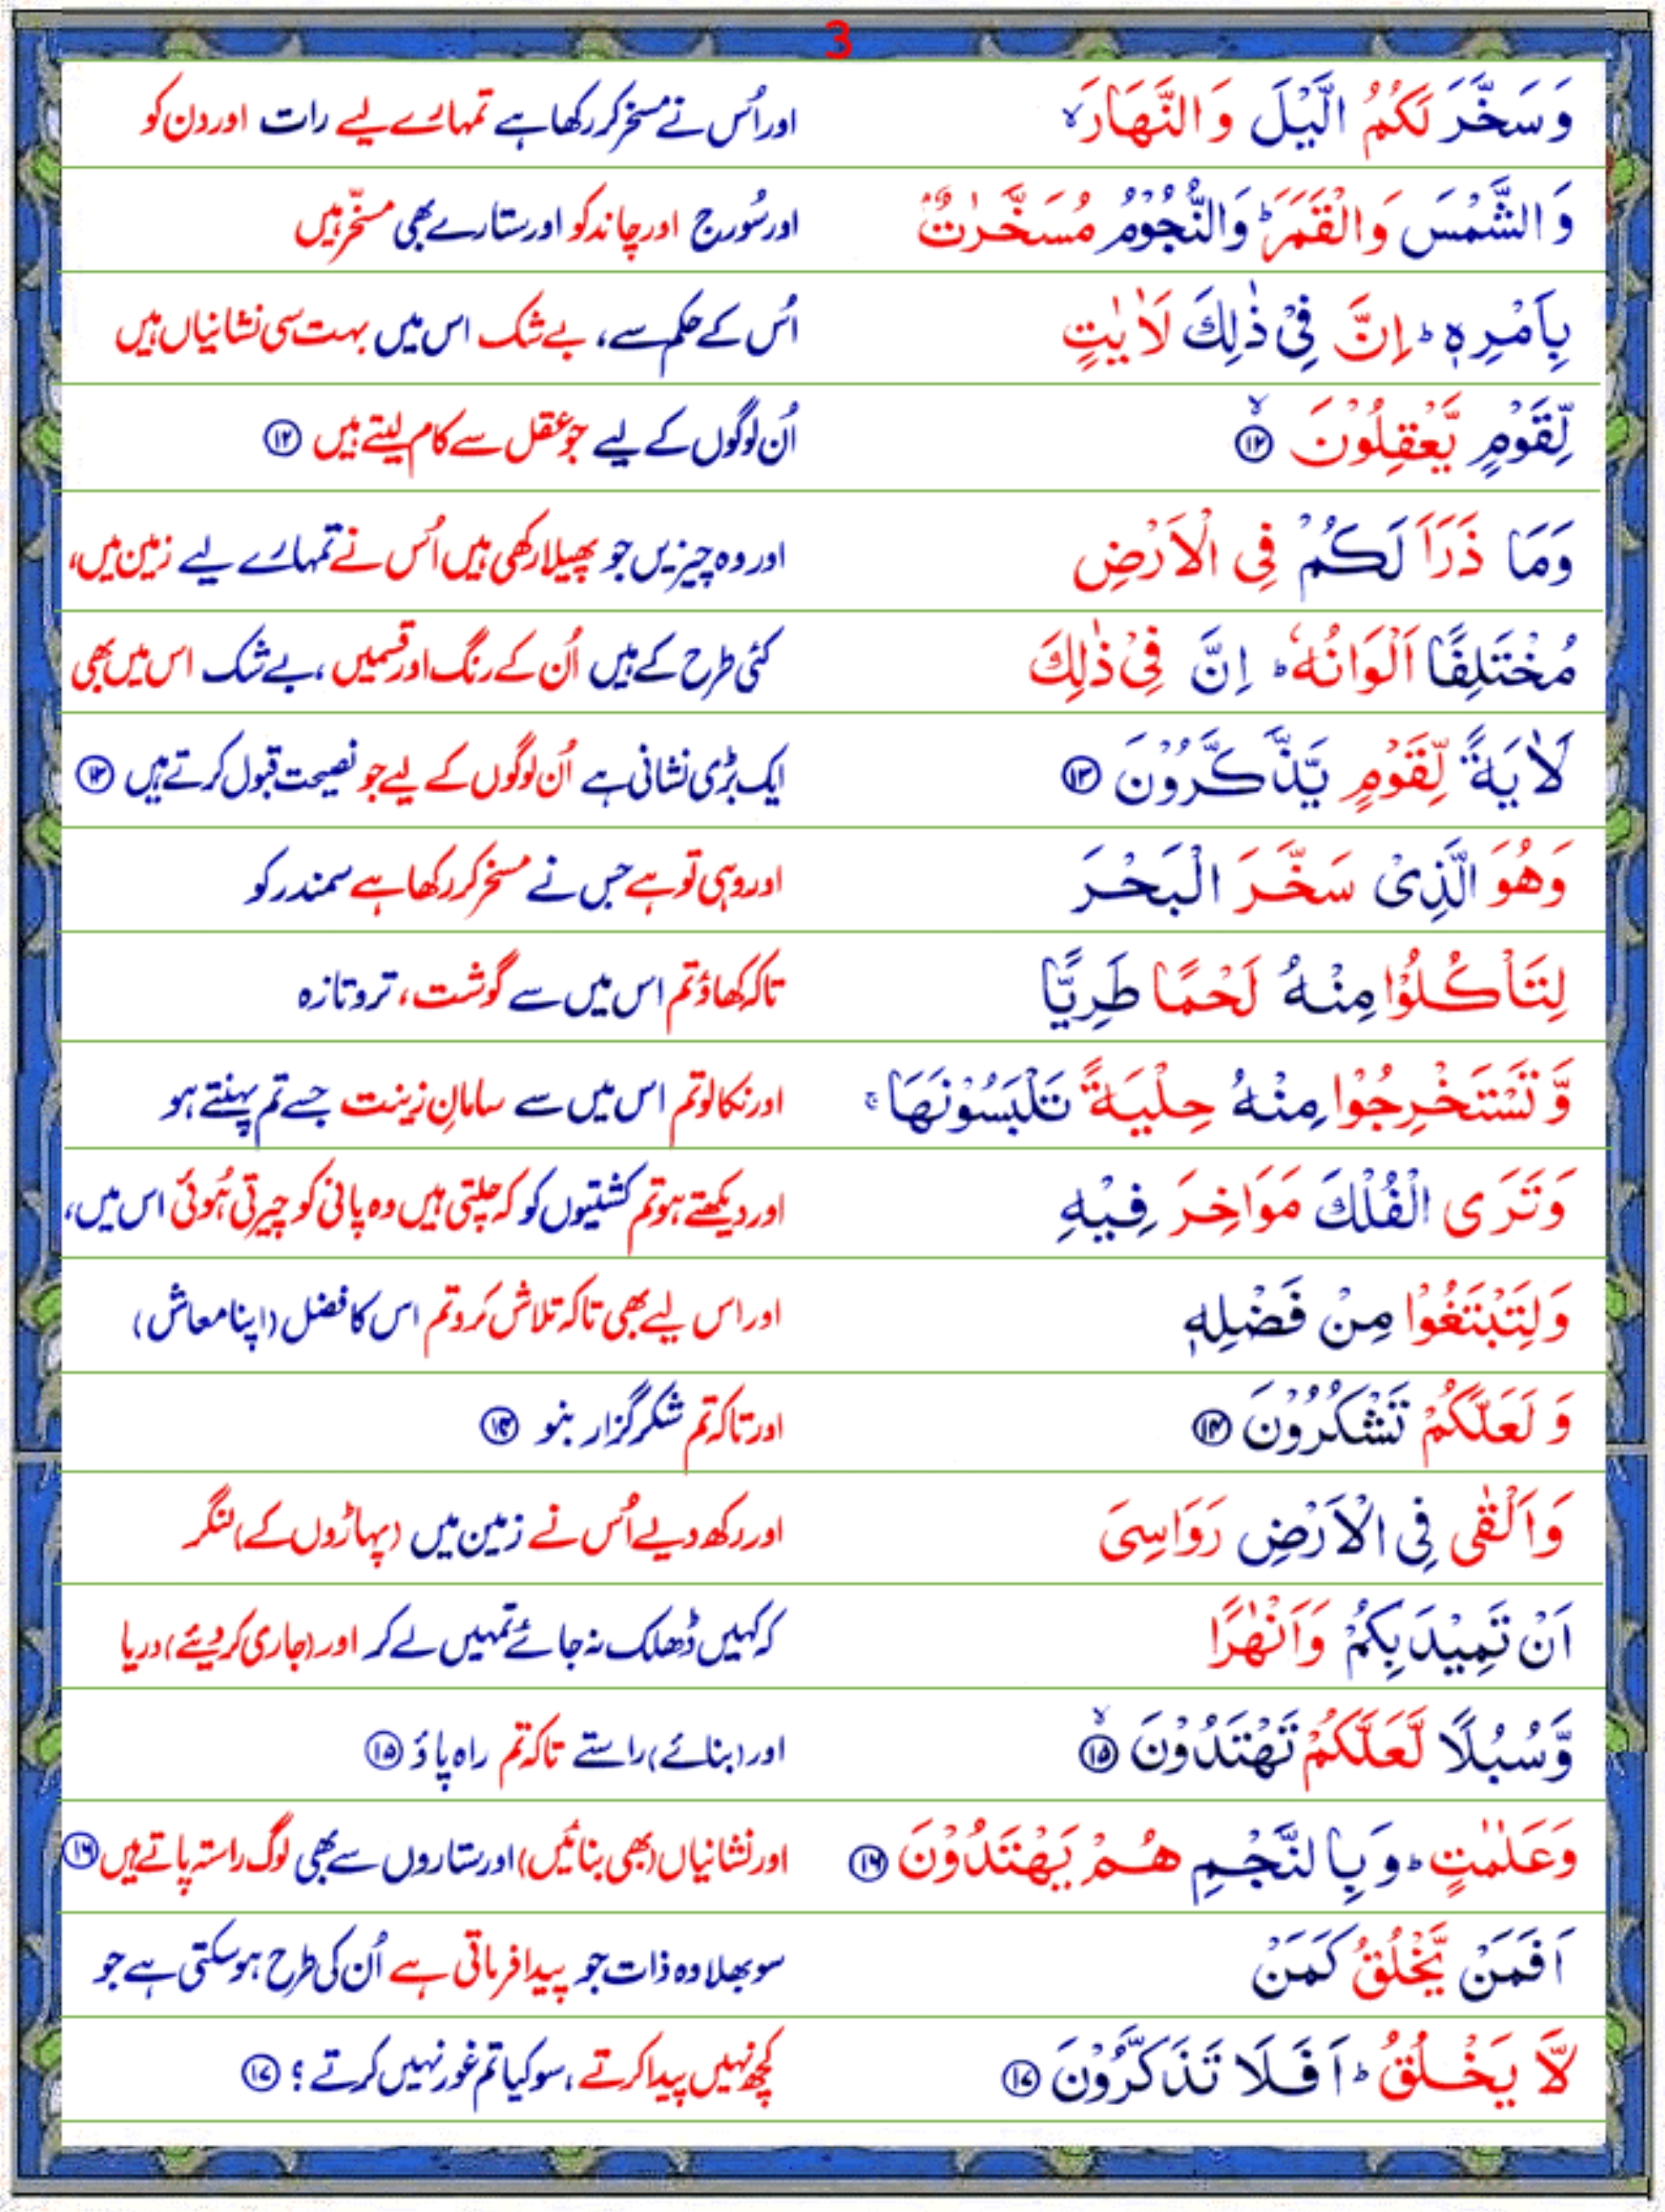 3
وَسَخَّرَ لَكُمُ الَّيْلَ وَالنَّهَارَۙ اور اُس نے مسخر کر رکھا ہے تمہارے لیے رات اور دن کو
وَالشَّمْسَ وَالْقَمَرَؕ وَالنُّجُوْمُ مُسَخَّرٰتٌۢ اور سُورج اور چاند کو اور ستارے بھی مسخّر ہیں
بِاَمْرِهٖؕ اِنَّ فِیْ ذٰلِكَ لَاٰیٰتٍ اُس کے حکم سے، بے شک اس میں بہت سی نشانیاں ہیں
لِّقَوْمٍ یَّعْقِلُوْنَۙ ۱۲ اُن لوگوں کے لیے جو عقل سے کام لیتے ہیں ۱۲
وَمَا ذَرَاَ لَكُمْ فِی الْاَرْضِ اور وہ چیزیں جو پھیلا رکھی ہیں اُس نے تمہارے لیے زمین میں،
مُخْتَلِفًا اَلْوَانُهٗؕ اِنَّ فِیْ ذٰلِكَ کئی طرح کے ہیں اُن کے رنگ اور قسمیں، بے شک اس میں بھی
لَاٰیَةً لِّقَوْمٍ یَّذَّكَّرُوْنَ ۱۳ ایک بڑی نشانی ہے اُن لوگوں کے لیے جو نصیحت قبول کرتے ہیں ۱۳
وَهُوَ الَّذِیْ سَخَّرَ الْبَحْرَ اور وہی تو ہے جس نے مسخر کر رکھا ہے سمندر کو
لِتَاْكُلُوْا مِنْهُ لَحْمًا طَرِیًّا تاکہ کھاؤ تم اس میں سے گوشت، تر و تازہ
وَّتَسْتَخْرِجُوْا مِنْهُ حِلْیَةً تَلْبَسُوْنَهَاۚ اور نکالو تم اس میں سے سامانِ زینت جسے تم پہنتے ہو
وَتَرَی الْفُلْكَ مَوَاخِرَ فِیْهِ اور دیکھتے ہو تم کشتیوں کو کہ چلتی ہیں وہ پانی کو چیرتی ہُوئی اس میں،
وَلِتَبْتَغُوْا مِنْ فَضْلِهٖ اور اس لیے بھی تاکہ تلاش کرو تم اس کا فضل (اپنا معاش)
وَلَعَلَّكُمْ تَشْكُرُوْنَ ۱۴ اور تاکہ تم شکر گزار بنو ۱۴
وَاَلْقٰی فِی الْاَرْضِ رَوَاسِیَ اور رکھ دیے اُس نے زمین میں (پہاڑوں کے) لنگر
اَنْ تَمِیْدَ بِكُمْ وَاَنْهٰرًا کہ کہیں ڈھلک نہ جائے تمہیں لے کر اور (جاری کر دیئے) دریا
وَّسُبُلًا لَّعَلَّكُمْ تَهْتَدُوْنَۙ ۱۵ اور (بنائے) راستے تاکہ تم راہ پاؤ ۱۵
وَعَلٰمٰتٍؕ وَبِالنَّجْمِ هُمْ یَهْتَدُوْنَ ۱۶ اور نشانیاں (بھی بنائیں) اور ستاروں سے بھی لوگ راستہ پاتے ہیں ۱۶
اَفَمَنْ یَّخْلُقُ كَمَنْ سو بھلا وہ ذات جو پیدا فرماتی ہے اُن کی طرح ہو سکتی ہے جو
لَّا یَخْلُقُؕ اَفَلَا تَذَكَّرُوْنَ ۱۷ کچھ نہیں پیدا کرتے، سو کیا تم غور نہیں کرتے ؟ ۱۷